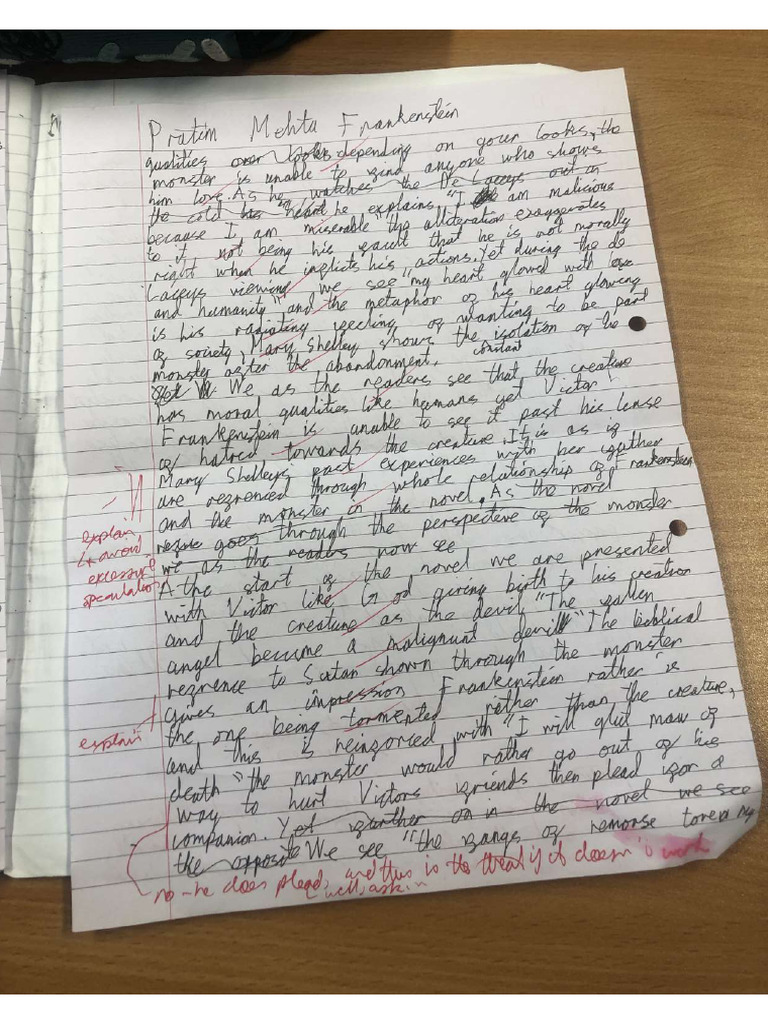 Pratim Mehta Frankenstein
qualities over looks depending on your looks, the
monster is unable to find anyone who shows
him love. As he watches the De Laceys out in
the cold his "heart he explains "I am malicious
because I am miserable" the alliteration exaggerates
to it not being his fault that he is not morally
right when he inflicts his actions. Yet during the de
Laceys viewing we see "my heart glowed with love
and humanity" and the metaphor of his heart glowing
is his radiating feeling of wanting to be part
of society, Mary Shelley shows the isolation of the
monster after the abandonment.
constant
Yet We as the readers see that the creature
has moral qualities like humans yet Victor
Frankenstein is unable to see it past his lense
of hatred towards the creature. It is as if
Mary Shelleys past experiences with her father
are refrenced through whole relationship of Frankenstein
and the monster in the novel. As the novel
goes through the perspective of the monster
we as the readers now see
A the start of the novel we are presented
with Victor like God giving birth to his creation
and the creature as the devil "The fallen
angel become a malignant devil" The biblical
refrence to Satan shown through the monster
gives an impression Frankenstein rather is
the one being tormented rather than the creature,
and this is reinforced with "I will glut maw of
death" the monster would rather go out of his
way to hurt Victors friends then plead for a
companion. Yet further on in the novel we see
the opposite We see "the fangs of remorse tore my
explain
avoid
excessive
speculation
explain
no - he does plead, and this is the threat if it doesn't work